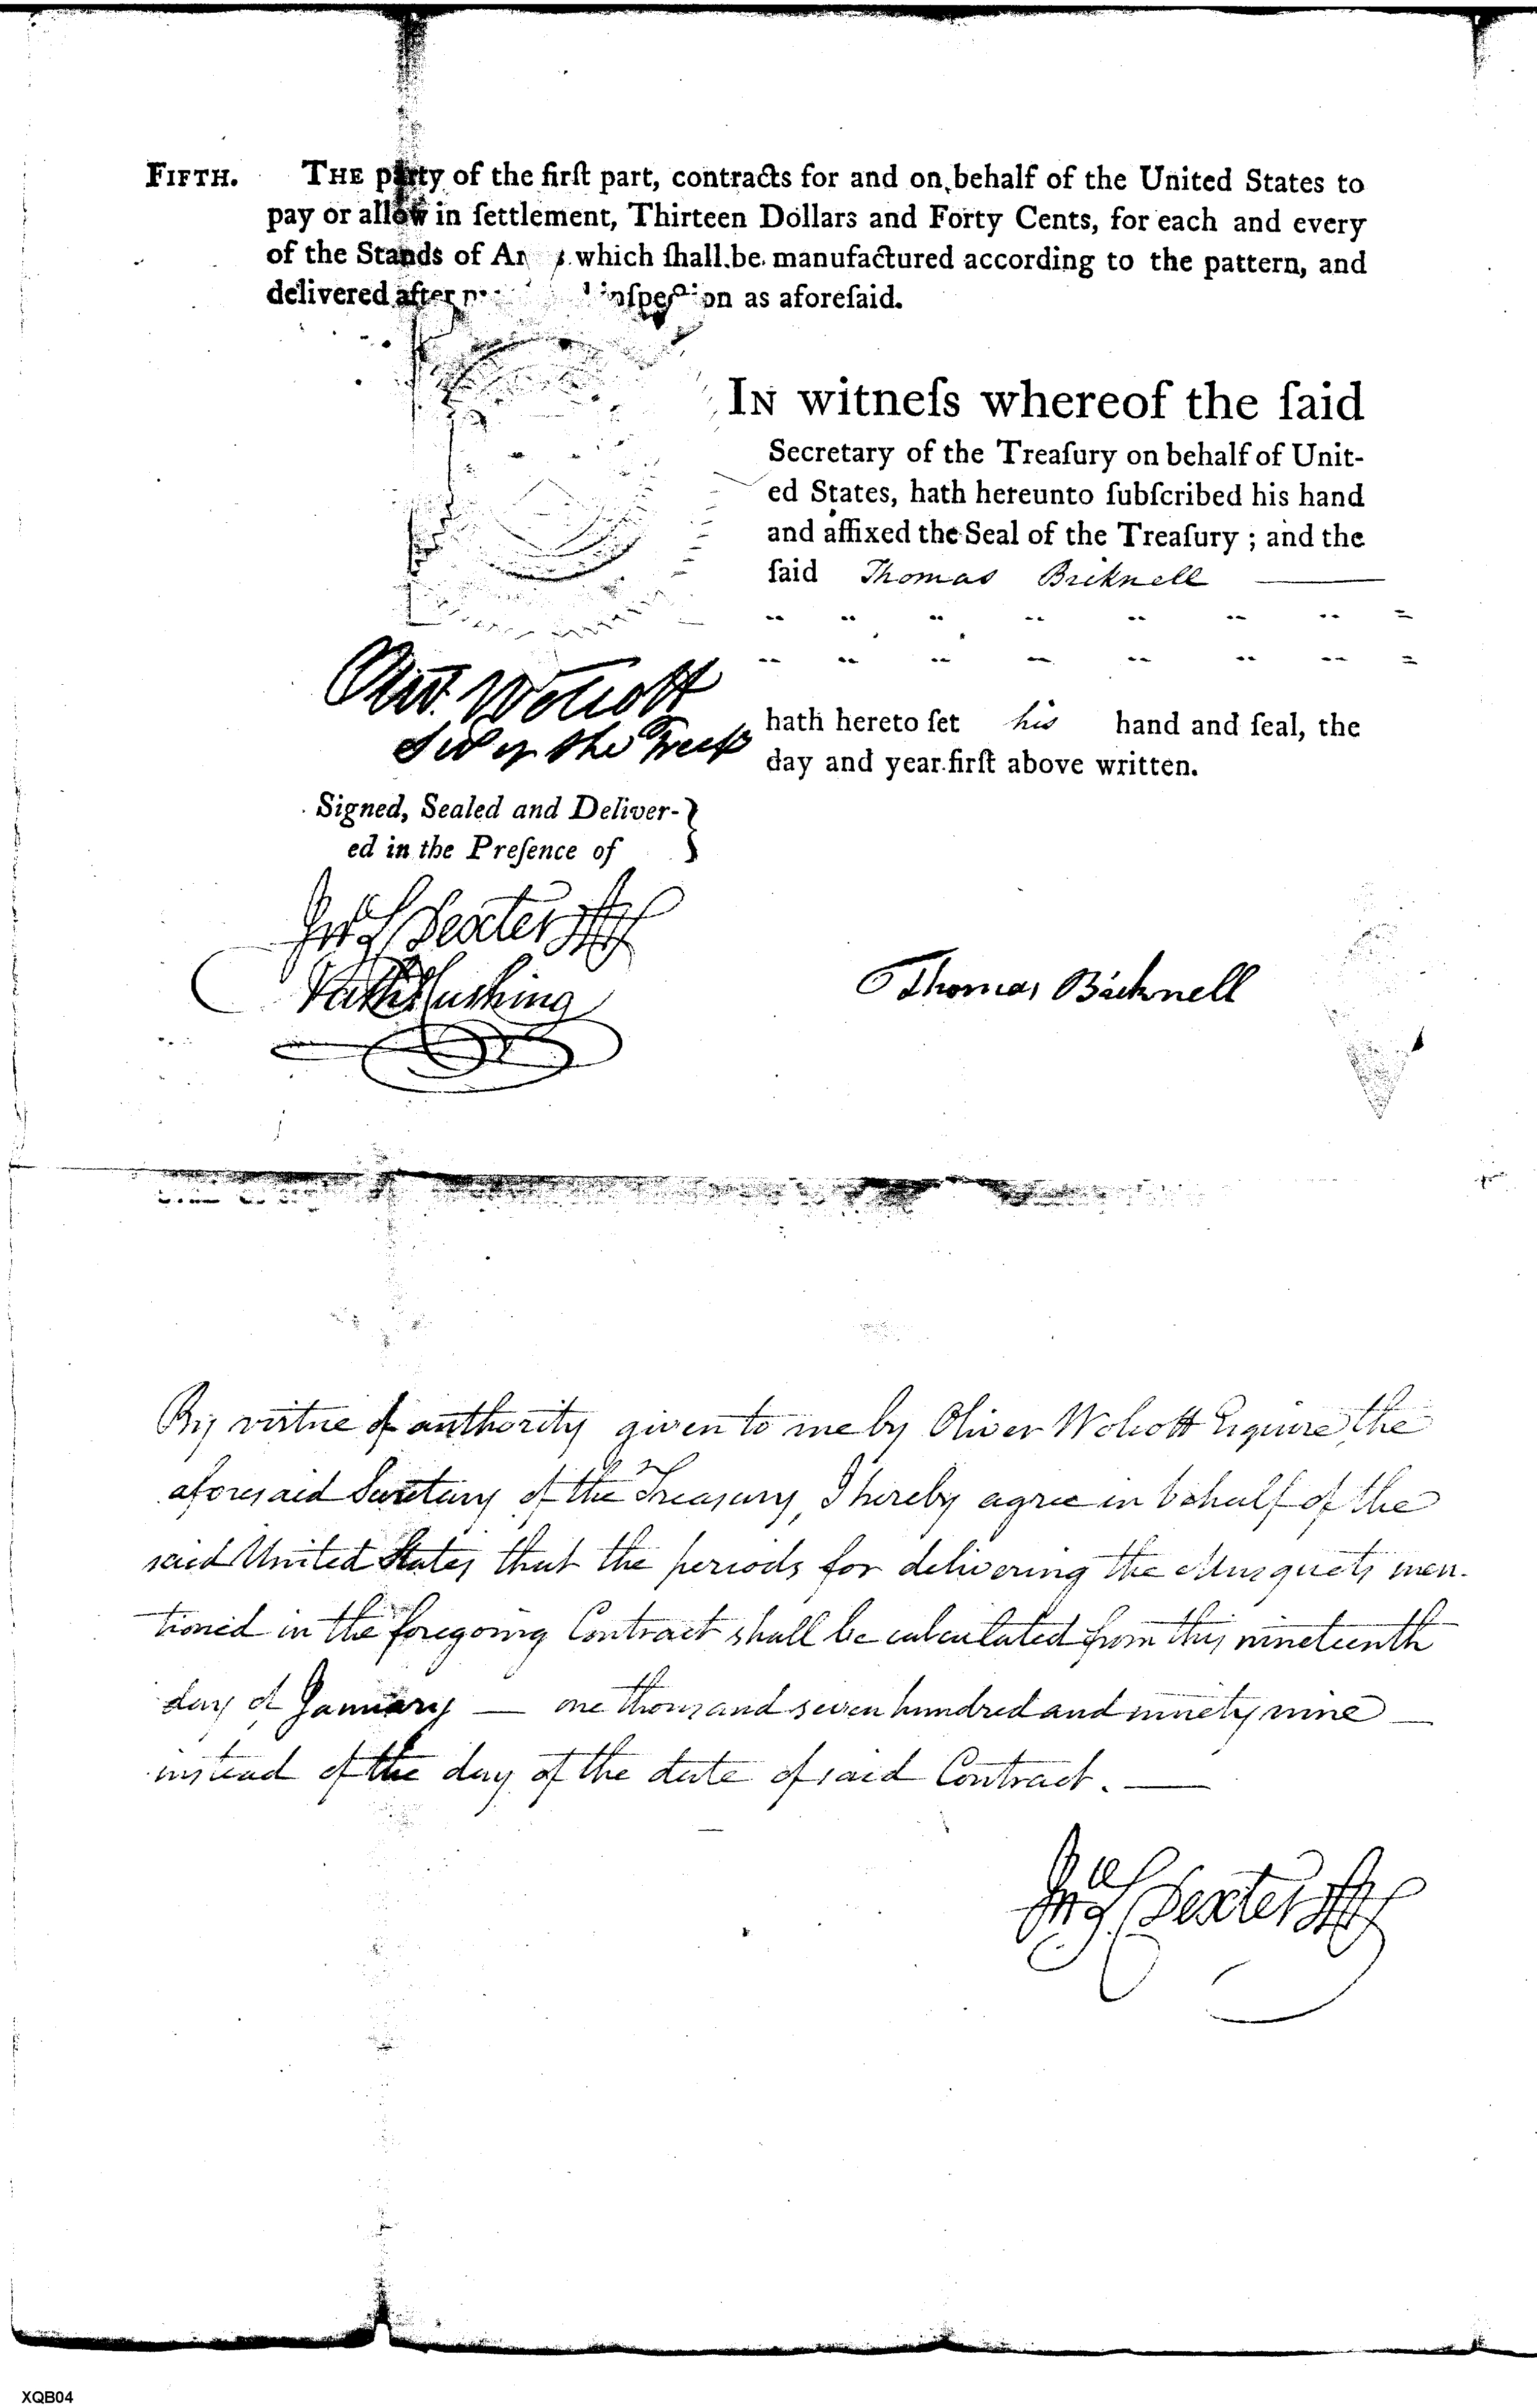 FIFTH. THE party of the firſt part, contracts for and on behalf of the United States to
pay or allow in ſettlement, Thirteen Dollars and Forty Cents, for each and every
of the Stands of which ſhall be manufactured according to the pattern, and
delivered after inſpection as aforeſaid.
IN witneſs whereof the ſaid
Secretary of the Treaſury on behalf of Unit-
ed States, hath hereunto ſubſcribed his hand
and affixed the Seal of the Treaſury ; and the
ſaid Thomas Bicknell
Oliv. Wolcott
of the
hath hereto ſet his hand and ſeal, the
day and year firſt above written.
Signed, Sealed and Deliver-
ed in the Preſence of
Dexter
Cushing
Thomas Bicknell
By virtue of authority given to me by Oliver Wolcott Esquire, the
aforesaid Secretary of the Treasury, I hereby agree in behalf of the
said United States that the periods for delivering the Musquets men-
tioned in the foregoing Contract shall be calculated from this nineteenth
day of January — one thousand seven hundred and ninety nine —
instead of the day of the date of said Contract. —
Dexter
XQB04